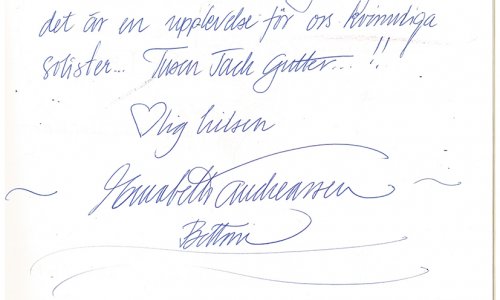 det är en upplevelse för oss kvinnliga
solister... Tusen Tack Gutter... !!
♡lig hilsen
~ Elisabeth Andreassen ~
Bettan